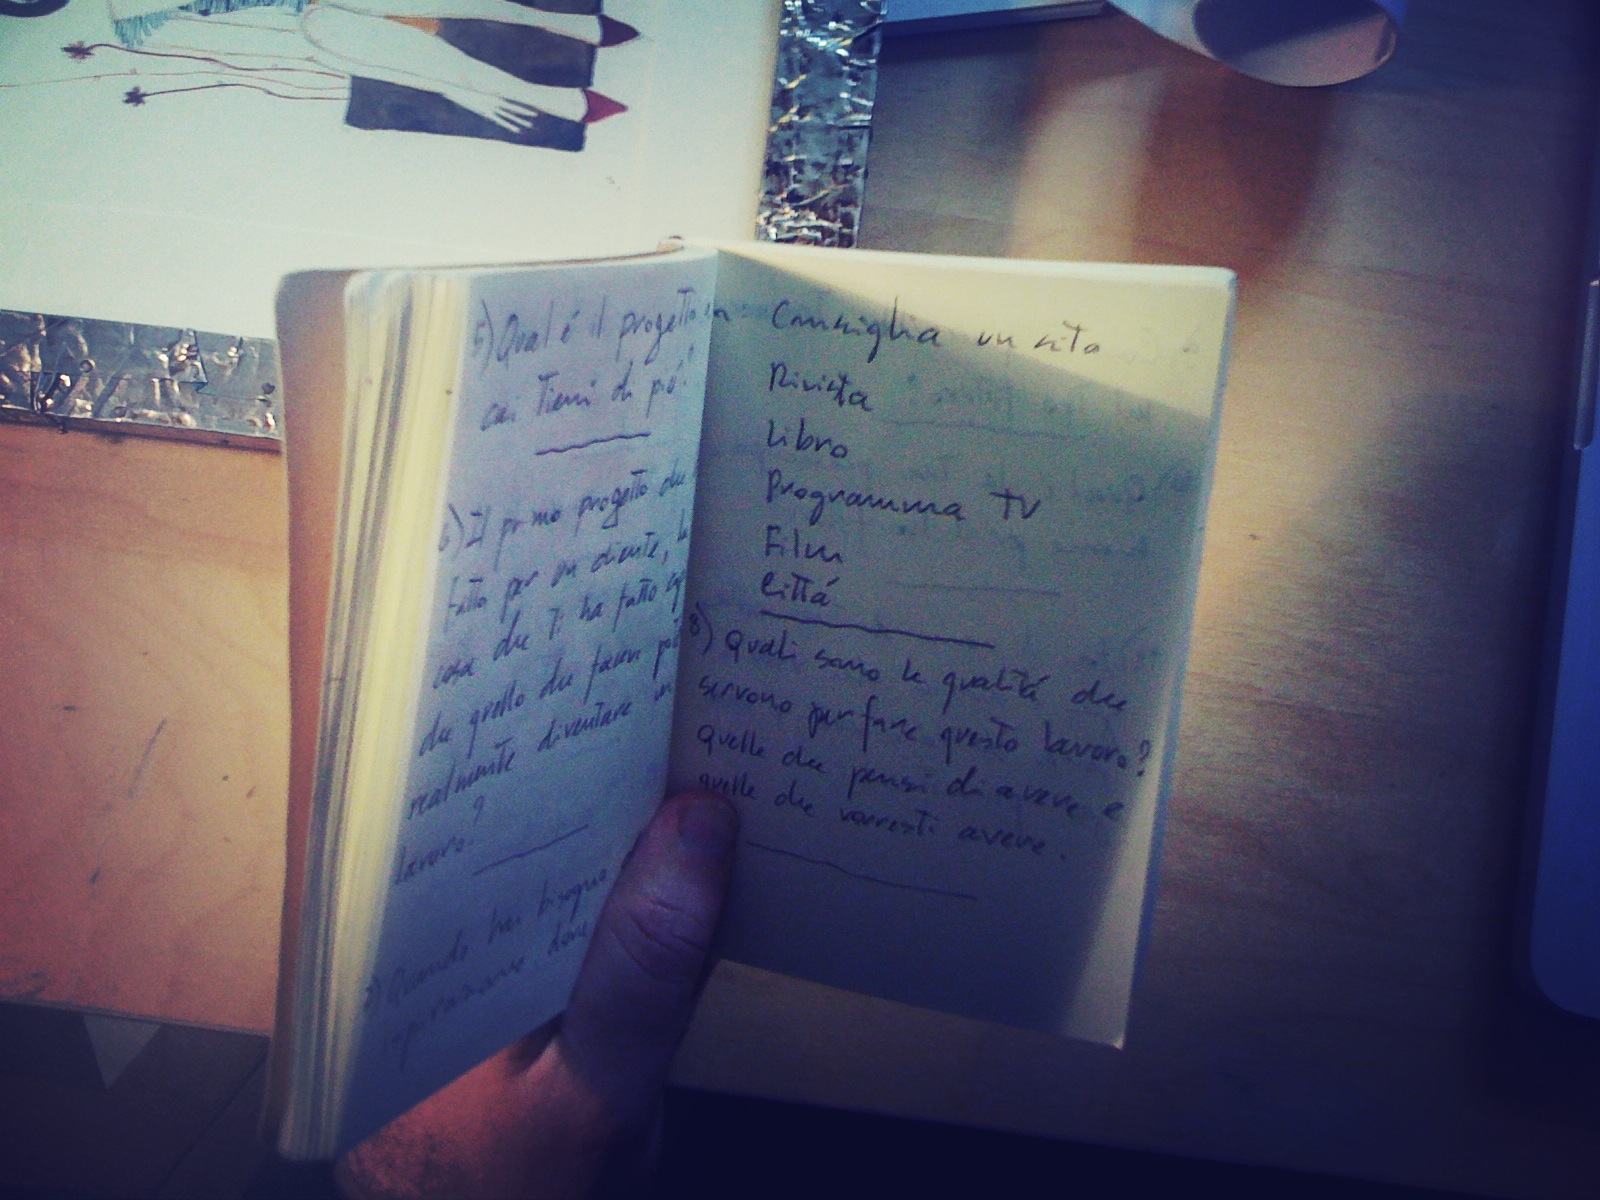 5) Qual é il progetto a
cui tieni di piú?
6) Il primo progetto che
fatto per un cliente, la
cosa che ti ha fatto
che quello che facevi
realmente diventare un
lavoro?
7) Quando hai bisogno
ispirazione dove
Consiglia un sito
Rivista
Libro
Programma TV
Film
Cittá
8) Quali sono le qualitá che
servono per fare questo lavoro?
Quelle che pensi di avere e
quelle che vorresti avere.